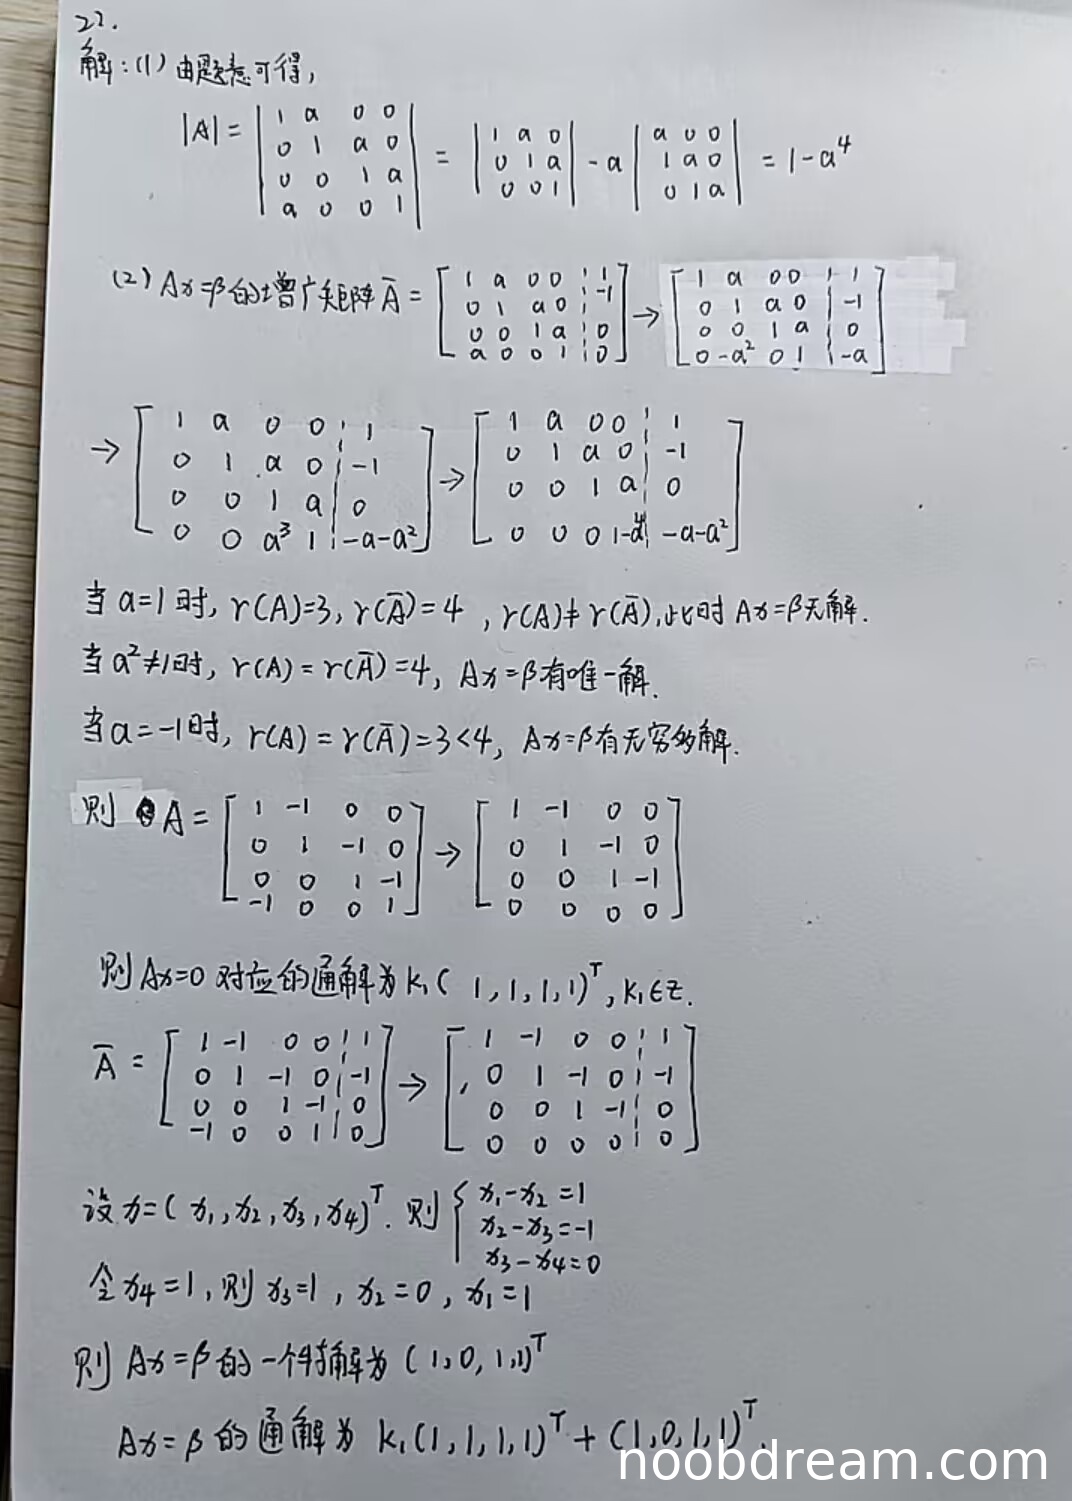 22.
解:(1) 由题意可得,
|A| = | 1 a 0 0 ; 0 1 a 0 ; 0 0 1 a ; a 0 0 1 | = | 1 a 0 ; 0 1 a ; 0 0 1 | - a | a 0 0 ; 1 a 0 ; 0 1 a | = 1-a⁴
(2) Ax=β的增广矩阵 A̅ = [ 1 a 0 0 ¦ 1 ; 0 1 a 0 ¦ -1 ; 0 0 1 a ¦ 0 ; a 0 0 1 ¦ 0 ] → [ 1 a 0 0 ¦ 1 ; 0 1 a 0 ¦ -1 ; 0 0 1 a ¦ 0 ; 0 -a² 0 1 ¦ -a ]
→ [ 1 a 0 0 ¦ 1 ; 0 1 a 0 ¦ -1 ; 0 0 1 a ¦ 0 ; 0 0 a³ 1 ¦ -a-a² ] → [ 1 a 0 0 ¦ 1 ; 0 1 a 0 ¦ -1 ; 0 0 1 a ¦ 0 ; 0 0 0 1-a⁴ ¦ -a-a² ]
当 a=1 时, r(A)=3, r(A̅)=4 , r(A)≠r(A̅),此时 Ax=β无解.
当 a²≠1时, r(A)=r(A̅)=4, Ax=β有唯一解.
当 a=-1时, r(A)=r(A̅)=3<4, Ax=β有无穷多解.
则 A = [ 1 -1 0 0 ; 0 1 -1 0 ; 0 0 1 -1 ; -1 0 0 1 ] → [ 1 -1 0 0 ; 0 1 -1 0 ; 0 0 1 -1 ; 0 0 0 0 ]
则 Ax=0 对应的通解为 k₁( 1,1,1,1)ᵀ, k₁∈z.
A̅ = [ 1 -1 0 0 ¦ 1 ; 0 1 -1 0 ¦ -1 ; 0 0 1 -1 ¦ 0 ; -1 0 0 1 ¦ 0 ] → [ 1 -1 0 0 ¦ 1 ; 0 1 -1 0 ¦ -1 ; 0 0 1 -1 ¦ 0 ; 0 0 0 0 ¦ 0 ]
设 x=( x₁,x₂,x₃,x₄)ᵀ. 则 { x₁-x₂=1
x₂-x₃=-1
x₃-x₄=0
令 x₄=1, 则 x₃=1 , x₂=0 , x₁=1
则 Ax=β 的一个特解为 (1,0,1,1)ᵀ
Ax=β 的通解为 k₁(1,1,1,1)ᵀ + (1,0,1,1)ᵀ.
noobdream.com